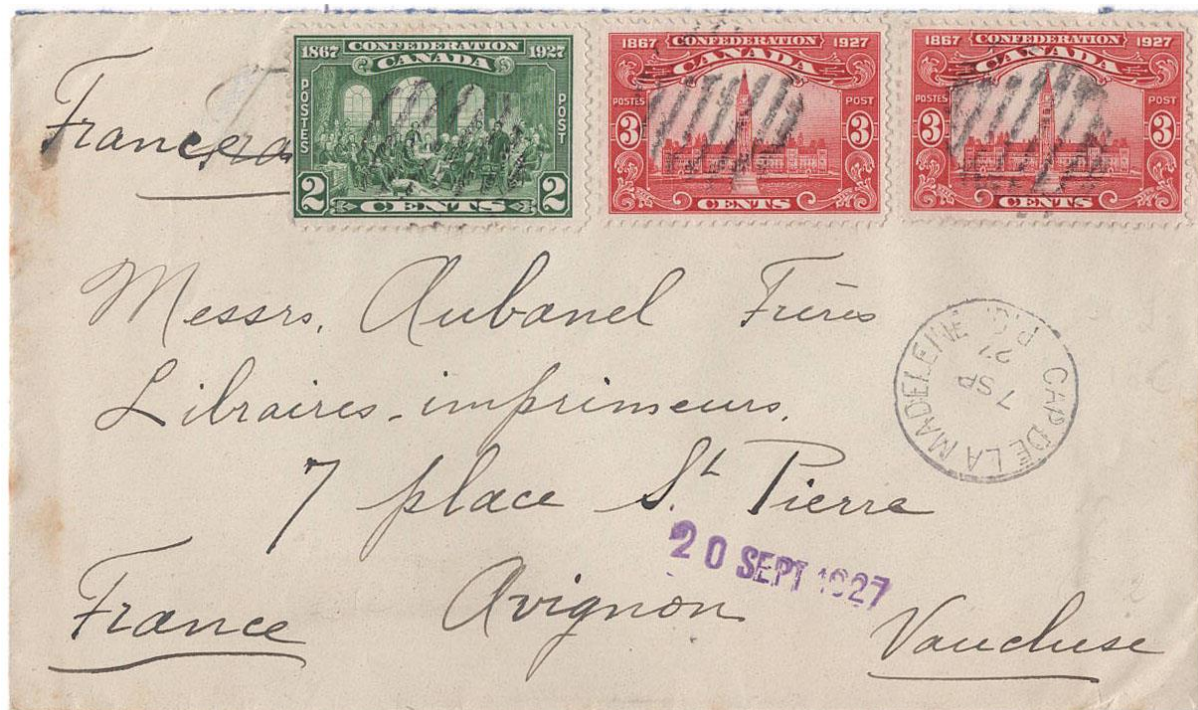 1867 CONFEDERATION 1927
CANADA
POSTES POST
2 CENTS 2
1867 CONFEDERATION 1927
CANADA
POSTES POST
3 3
CENTS
1867 CONFEDERATION 1927
CANADA
POSTES POST
3 3
CENTS
France
Messrs. Aubanel Frères
Libraires-imprimeurs.
7 place St Pierre
Avignon
France
Vaucluse
CAP DE LA MADELEINE P.Q.
7 SP
27
20 SEPT 1927